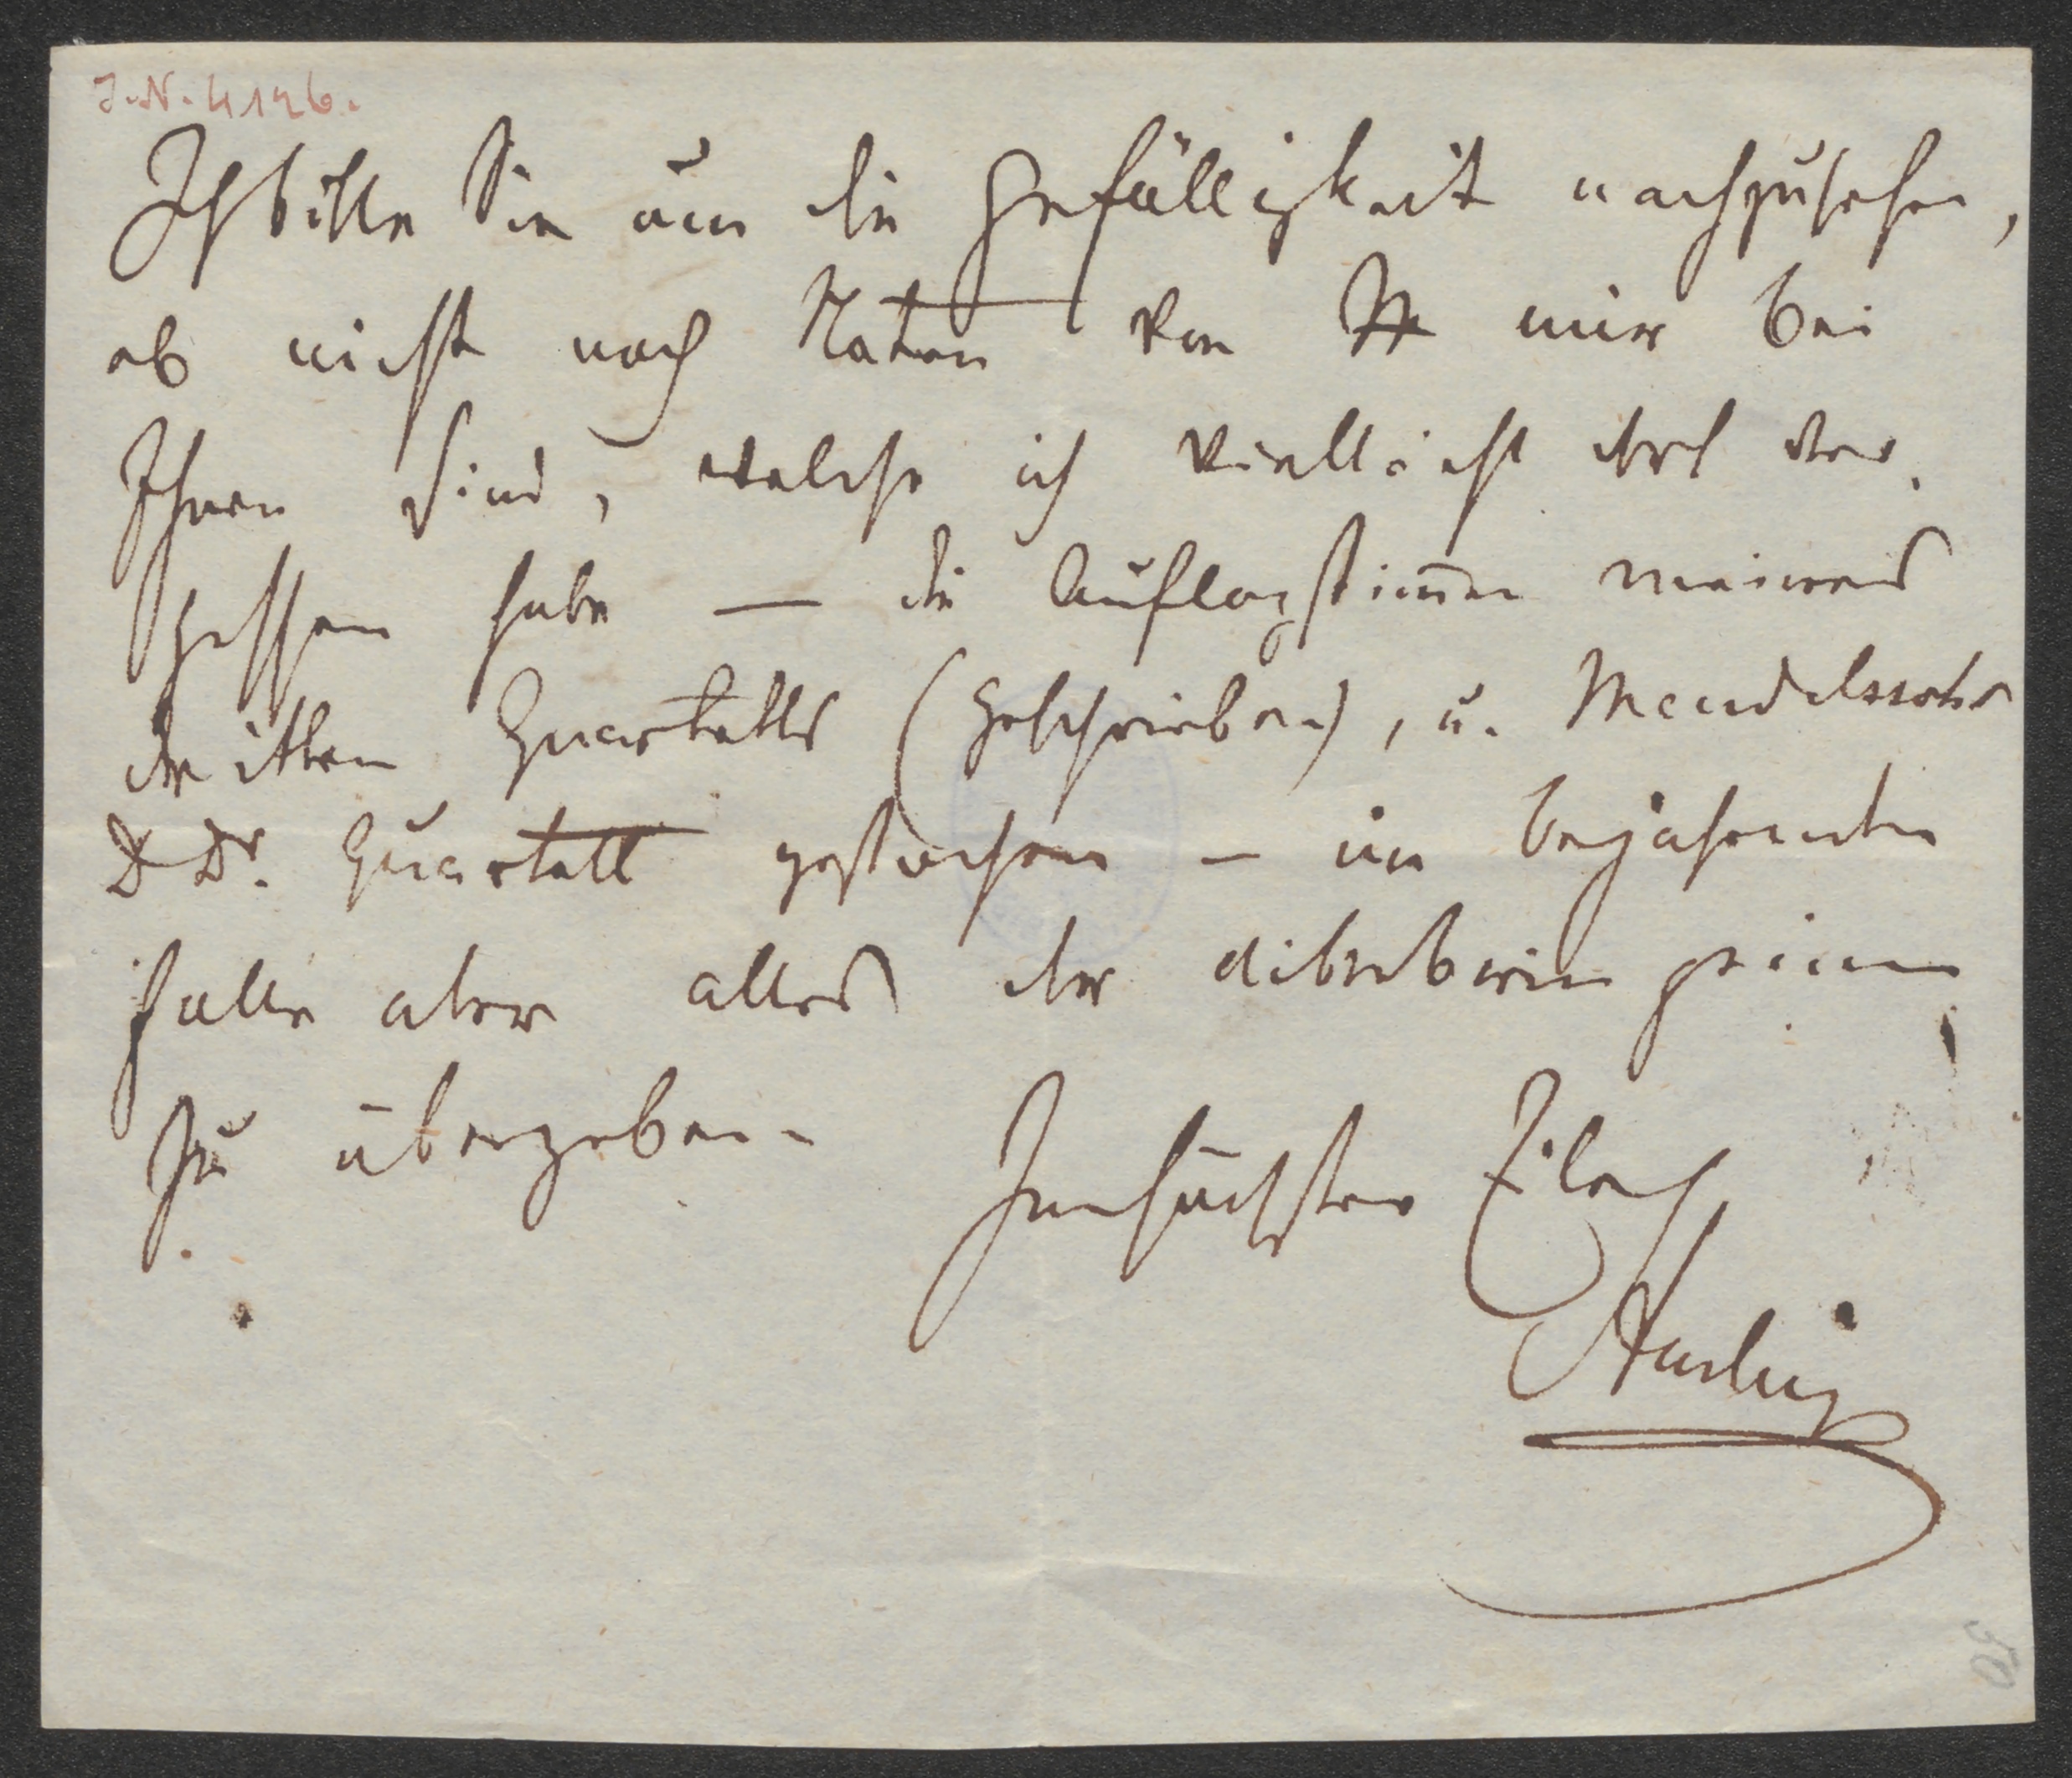 J.N. 4126.
Ich bitte Sie um die Gefälligkeit nachzusehen,
ob nicht noch Noten von mir bei
Ihnen sind, welche ich vielleicht dort ver-
gessen habe — die Auflagstimmen meines
dritten Quartetts (geschrieben), u. Mendelssohn
D Dr. Quartett gestochen — im bejahenden
Falle aber alles der
zu übergeben.
In höchster Eile
Hardtmuth